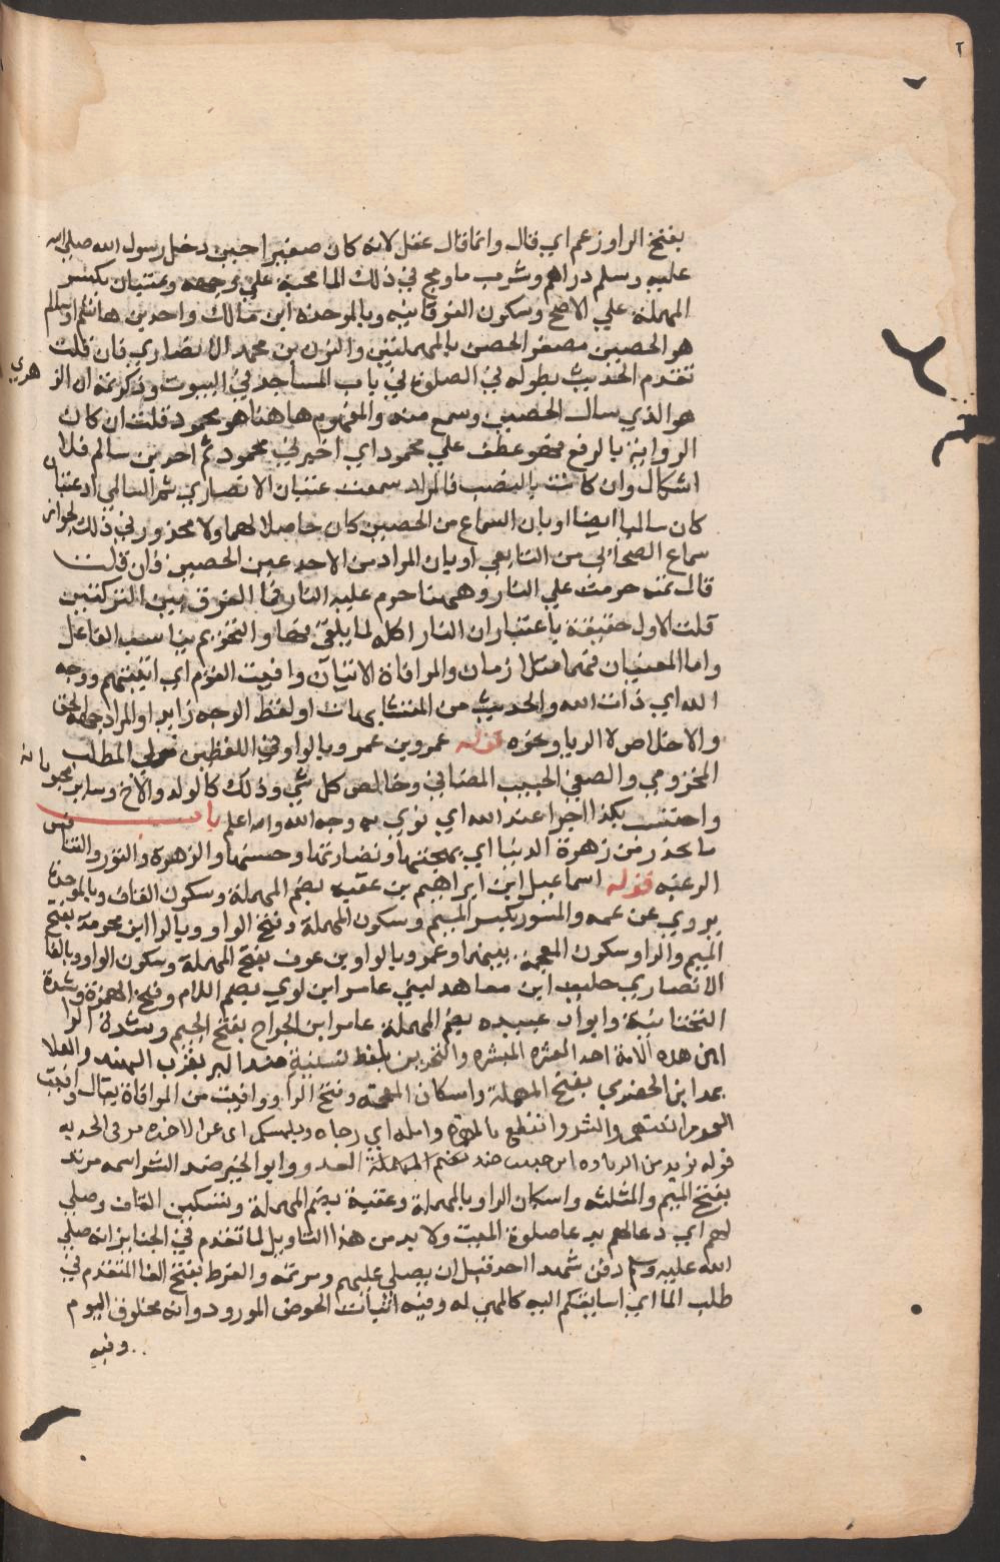 ٢
بفتح الراو زعم اي قال وانما قال عقل لانه كان صغيرا حين دخل رسول الله صلي الله
عليه وسلم دراهم وشرب ما ومج في ذلك الما مجة علي وجهه وعتبان بكسر
المهملة علي الاصح وسكون الفوقانية وبالموحدة ابن مالك واحد بن هانئم او سالم
هو الحصين مصغر الحصن بالمهملتين والنون بن محمد الانصاري فان قلت
تقدم الحديث بطوله في الصلوة في باب المساجد في البيوت وذكر ثمة ان الز
هري
هو الذي سال الحصين وسمع منه والمفهوم هاهنا هو محمود قلت ان كان
الرواية بالرفع فهو عطف علي محمود اي اخبرني محمود ثم احد بن سالم فلا
اشكال وان كانت بالنصب فالمراد سمعت عتبان الانصاري ثم السالمي اذ عتبان
كان سالميا ايضا او بان السماع من الحصين كان حاصلا لهما ولا محذور في ذلك لجواز
سماع الصحابي من التابعي او بان المراد من الاحد عين الحصين فان قلت
قال ثمة حرمت علي النار وههنا حرم عليه النار فما الفرق بين التركيبين
قلت الاول حقيقة باعتبار ان النار اكلة لما يلقي فيها والتحريم يناسب الفاعل
واما المعنيان فهما متلازمان والموافاة الاتيان وافيت القوم اي اتيتهم ووجه
الله اي ذات الله والحديث من المتشابهات او لفظ الوجه زايد او المراد جهة الحق
والاخلاص لا الريا ونحوه قوله عمرو بن عمرو بالواو في اللفظين مولي المطلب
المخزومي والصفي الحبيب المصافي وخالص كل شي وذلك كالولد والاخ وساير محبوباته
واحتسب بكذا اجرا عند الله اي نوي به وجه الله والله اعلم باب
ما يحذر من زهرة الدنيا اي بهجتها ونضارتها وحسنها والزهرة والنور والتنافس
الرغبة قوله اسماعيل ابن ابراهيم بن عقبه بضم المهملة وسكون القاف وبالموحدة
يروي عن عمه والمسور بكسر الميم وسكون المهملة وفتح الواو وبالرا ابن مخرمة بفتح
الميم والراو سكون المعجمة بينهما وعمرو بالواو بن عوف بفتح المهملة وسكون الواو وبالفا
الانصاري حليف ابن معاهد لبني عامر ابن لوي بضم اللام وفتح الهمزة وشدة
التحتانية وابو ا عبيده بضم المهملة عامر ابن الجراح بفتح الجيم وشدة الرا
امين هذه الامة احد العشره المبشره والبحرين بلفظ تثنية ضد البر بقرب الهند والعلا
بمد ابن الحضري بفتح المهملة واسكان المعجمة وفتح الرا ووافيت من الموافاة يقال وافيت
القوم اتيتهم والتشر وانتقطع بالهمزة وامله اي رجاه ويلهيكم اي عن الاخره مر في الجزيه
قوله يزيد من الزياده ابن حبيب ضد بفتح المهملة العدو وابو الخير ضد الشر اسمه مرثد
بفتح الميم والمثلثه واسكان الراو بالمهملة وعقبة بضم المهملة وتسكين القاف وصلي
لهم اي دعا لهم بدعا صلوة الميت ولا بد من هذا التاويل لما تقدم في الجنايز انه صلي
الله عليه وسلم دفن شهدا احد قبل ان يصلي عليهم ومر ثمة والفرط بفتح الفا المتقدم في
طلب الما اي اسابقكم اليه كالمهي له وفيه اثبات الحوض المورود وانه مخلوق اليوم
وفيه